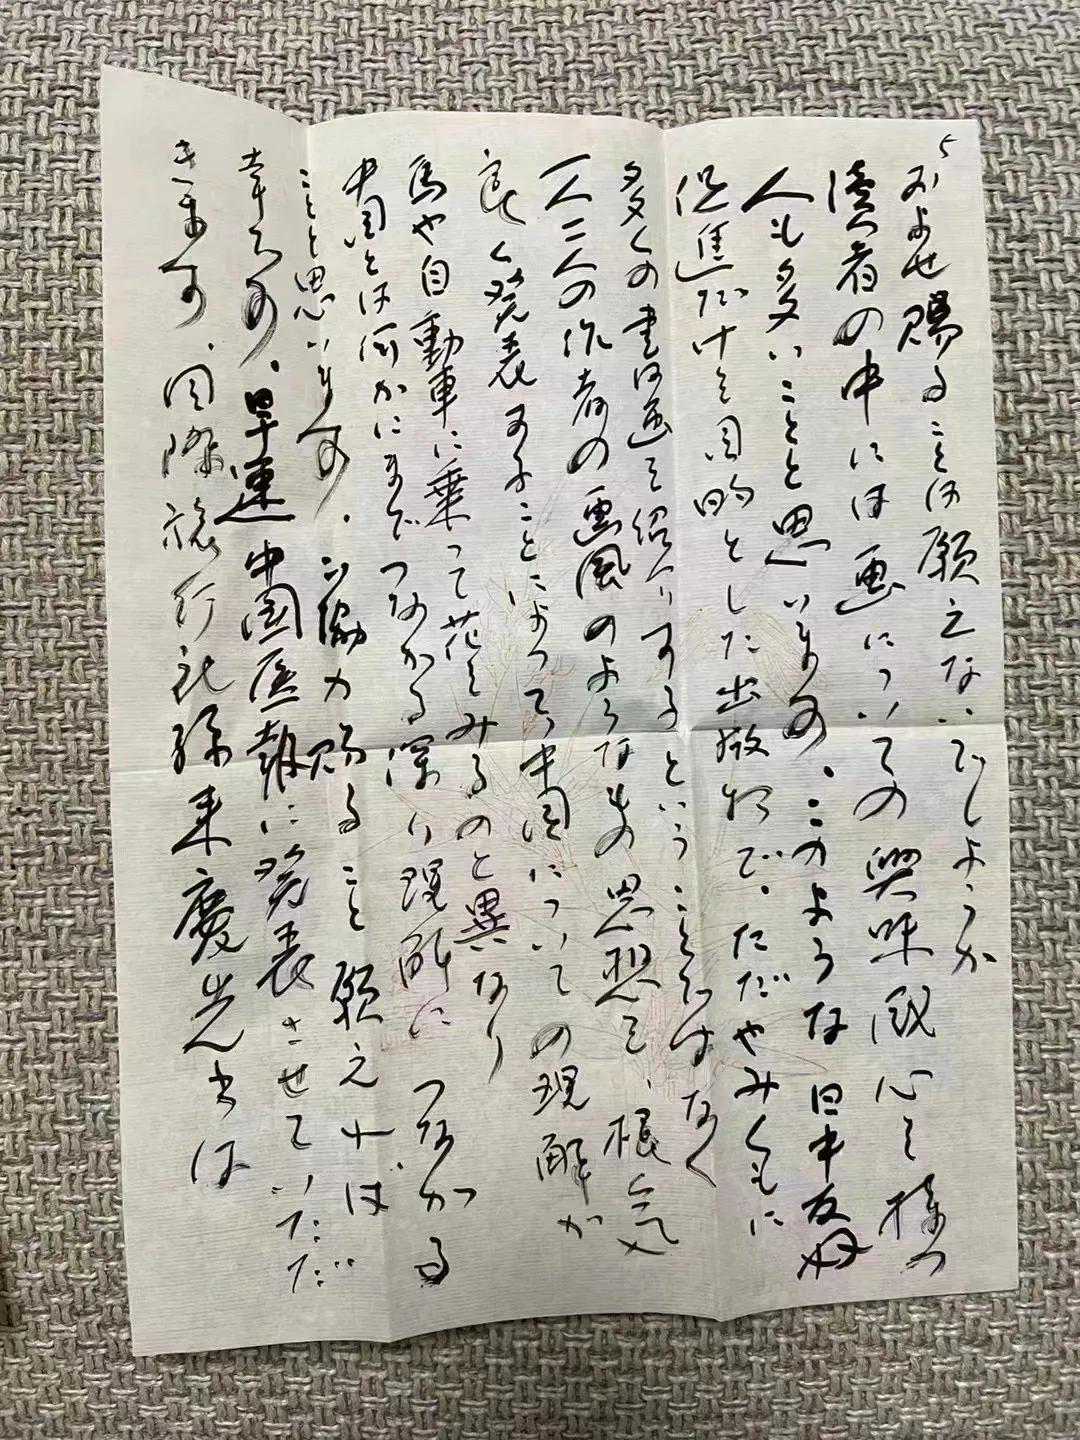 5
およせ賜ることは願えないでしょうか
読者の中には画についての興味関心を持つ
人も多いことと思います。このような日中友好
促進だけを目的とした出版物で、ただやみくもに
多くの書画を紹介するということではなく
一人二人の作者の画風のような 思想を、根気
良く発表することによって、中国についての理解が
馬や自動車に乗って花をみるのと異なり
中国とは何かにまでつながる深い理解につながる
ことと思います。ご協力賜ること願えれば
幸です。早速中国画報に発表させていただ
きます。国際旅行社孫来慶先生は